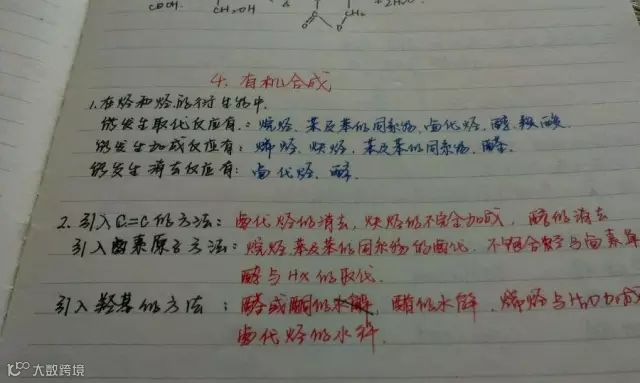 COOH
CH₂OH
&
CH₂
+2H₂O
4. 有机合成
1. 在烃和烃的衍生物中
能发生取代反应有：烷烃、苯及苯的同系物、卤代烃、醇、羧酸
能发生加成反应有：烯烃、炔烃、苯及苯的同系物、醛
能发生消去反应有：卤代烃、醇.
2. 引入C=C的方法：卤代烃的消去，炔烃的不完全加成，醇的消去
引入卤素原子方法：烷烃、苯及苯的同系物的卤代. 不饱合烃与卤素单
醇与HX的取代.
引入羟基的方法：醛或酮的 酯的水解、烯烃与H₂O加成
卤代烃的水
大数跨境